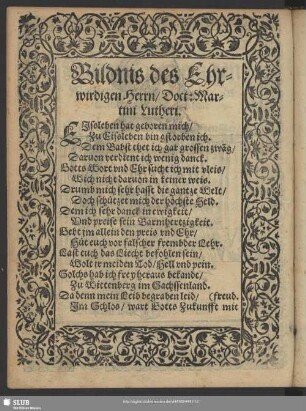 Bildnis des Ehr-
wirdigen Herrn/ Doct: Mar-
tini Lutheri.
EIsleben hat geboren mich/
Zu Eisleben bin gstorben ich.
Dem Babst thet ich gar grossen zwäg/
Daruon verdient ich wenig danck.
Gottes Wort vnd Ehr sucht ich mit vleis/
Wich nicht daruon in keiner weis.
Drumb mich sehr hasst die gantze Welt/
Doch schützet mich der höchste Held.
Dem ich sehr danck in ewigkeit/
Vnd preise sein Barmhertzigkeit.
Gebt jm allein den preis vnd Ehr/
Hüt euch vor falscher frembder Lehr.
Last euch das Liecht befohlen sein/
Wolt jr meiden Tod/ Hell vnd pein.
Solchs hab ich frey heraus bekandt/
Zu Wittenberg im Sachssenland.
Da denn mein Leib begraben leid/ (freud.
Im Schlos/ wart Gottes Zukunfft mit
SLUB